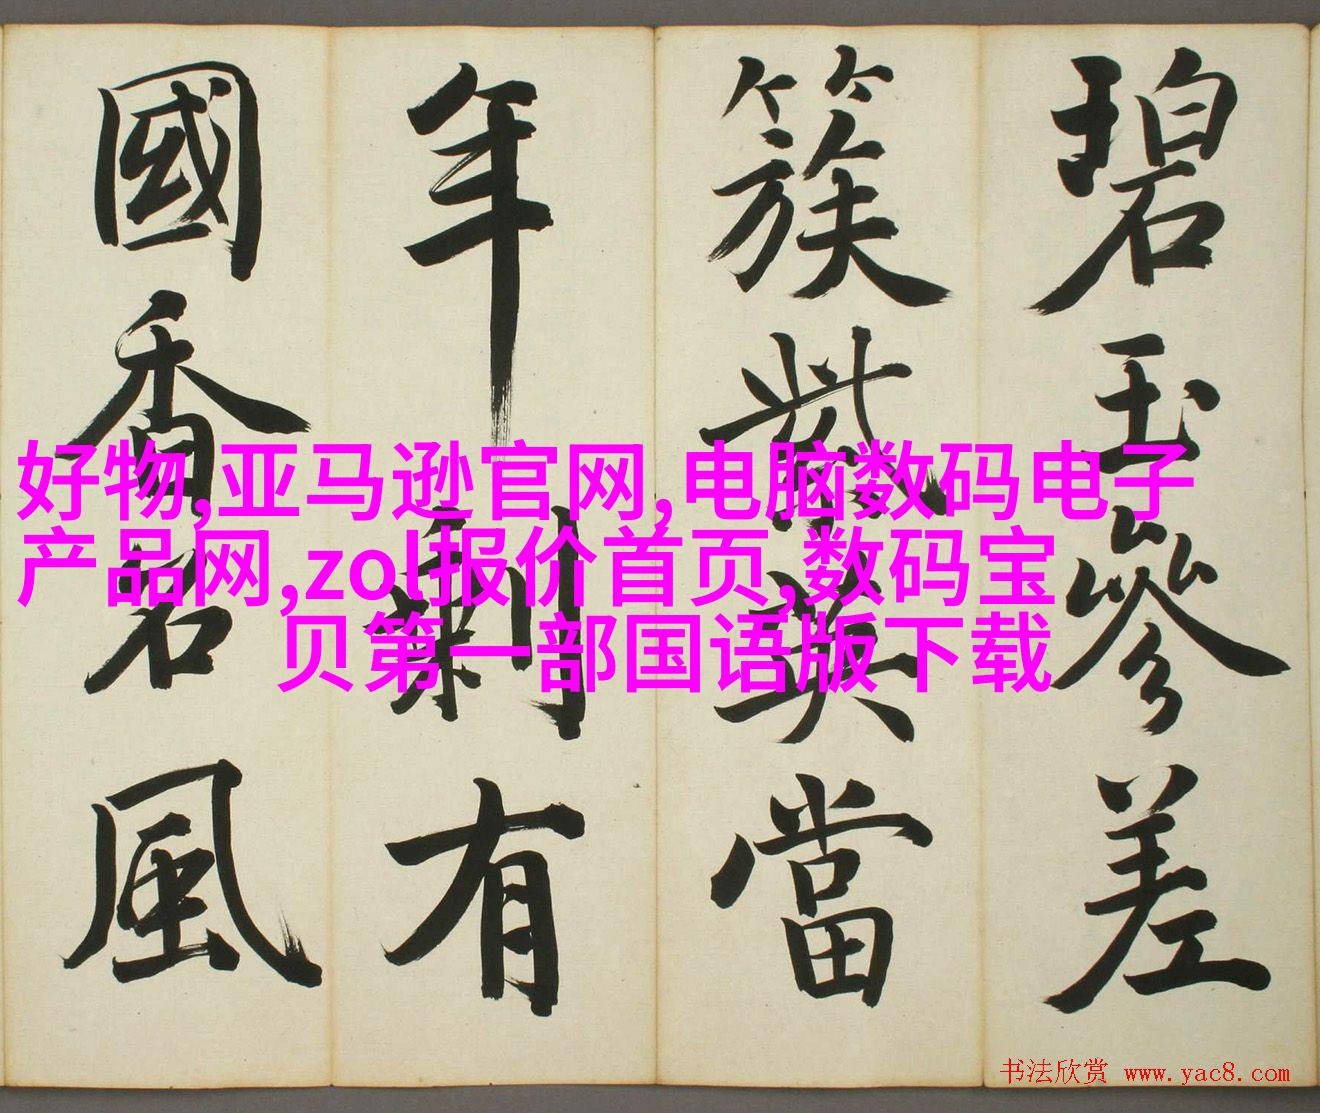 碧玉參差
簇紫英當
年剩有
國香名風
好物,亚马逊官网,电脑数码电子
产品网,zol报价首页,数码宝
贝第一部国语版下载
书法欣赏 www.yac8.com